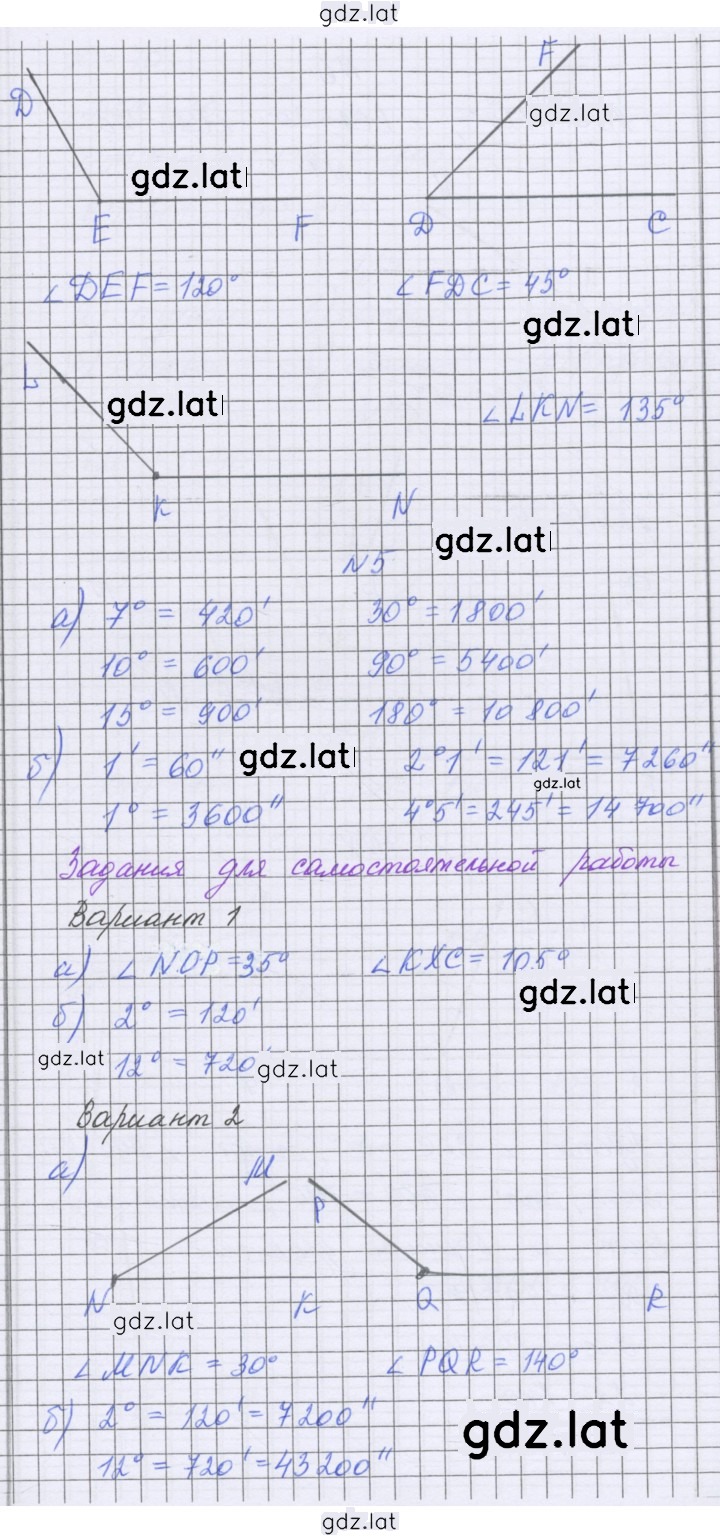 gdz.lat
F
D
gdz.lat
gdz.lat
E F D C
∠DEF = 120° ∠FDC = 45°
gdz.lat
L
gdz.lat
∠LKN = 135°
K N
gdz.lat
N5
а) 7° = 420' 30° = 1800'
10° = 600' 90° = 5400'
15° = 900' 180° = 10 800'
б) 1' = 60" gdz.lat 2°1' = 121' = 7260"
gdz.lat
1° = 3600" 4°5' = 245' = 14 700"
Задания для самостоятельной работы
Вариант 1
а) ∠NOP = 35° ∠KXC = 105°
gdz.lat
б) 2° = 120'
gdz.lat
12° = 720'
gdz.lat
Вариант 2
а) M
P
N K Q R
gdz.lat
∠MNK = 30° ∠PQR = 140°
б) 2° = 120' = 7200"
gdz.lat
12° = 720' = 43200"
gdz.lat